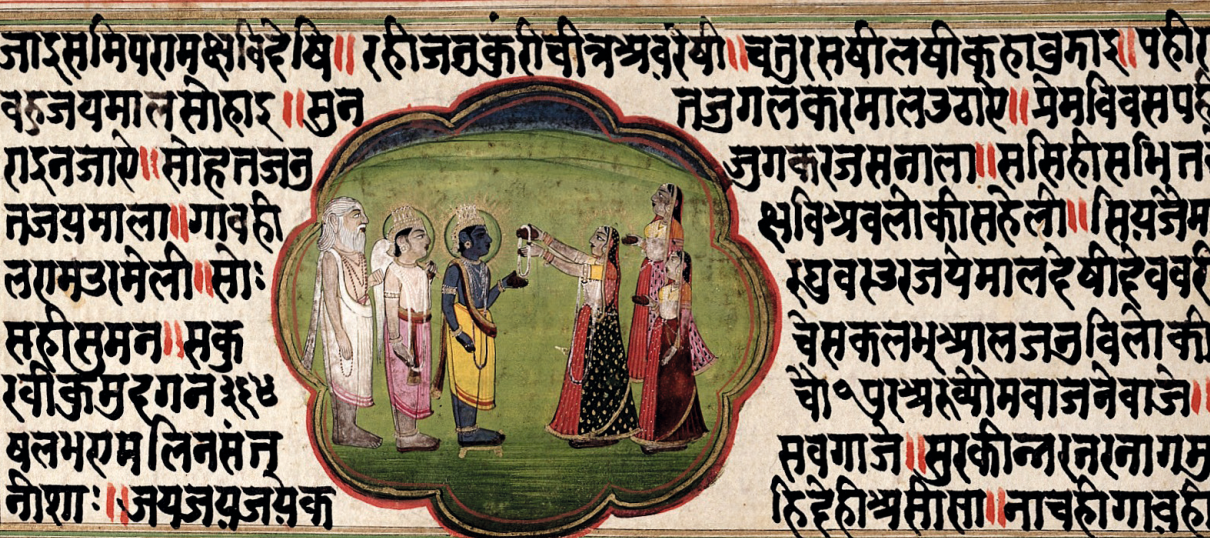 जाइसमिपरामक्षविदेषि॥रहीजनुकुरीचीत्रअवरेषी॥चतुरसषीलषीकहावुझाइ॥पहीरा
वहुजयमालसोहाइ॥सुन तजुगलकरमालउठाऐ॥प्रेमविवसपही
राइनजाऐ॥सोहतजनु जुगकरजसनाला॥ससिहीसभित
तजयमाला॥गावही क्षविअवलोकीसहेली॥सियजैम
लरामउरमेली॥सोः रघुवरउरजयेमालदेषीदेववरी
सहीसुमन॥सकु चेसकलभुआलजनुविलोकी
रवीकुमुदगन३६४ चो॰पुरअरुव्योमवाजनेवाजे॥
षलभएमलिनसंत्त सवगाजे॥सुरकीन्नरनरनागमु
नीशाः॥जयजयजयेक हिदेहीअसीसा॥नाचहीगावही